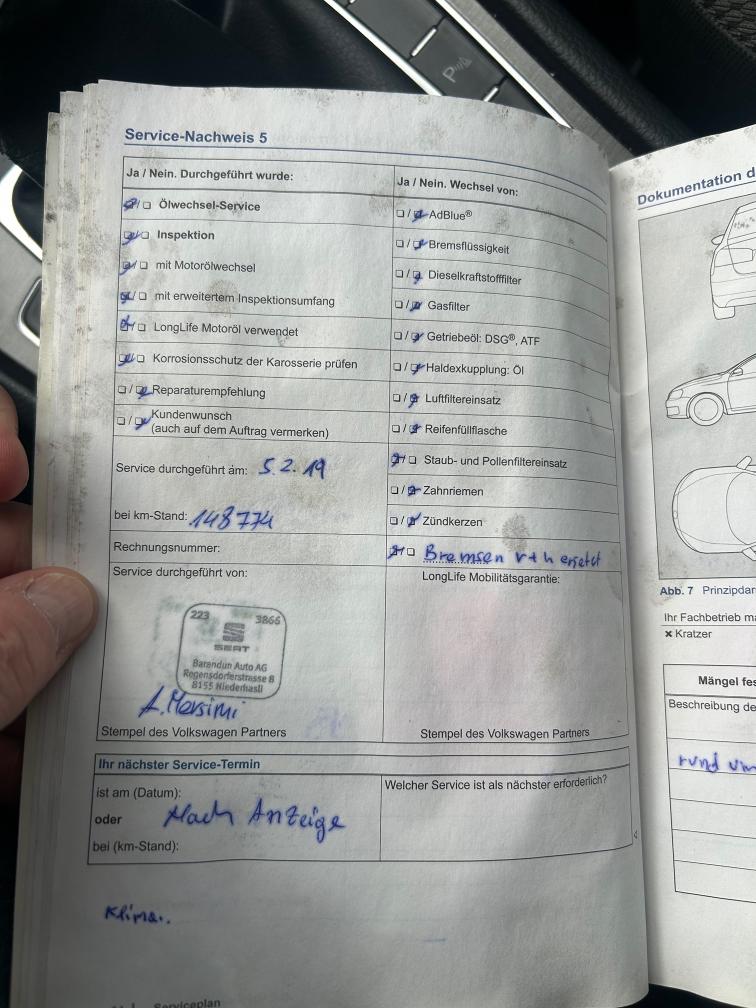 Service-Nachweis 5
Ja / Nein. Durchgeführt wurde:
Ölwechsel-Service
Inspektion
mit Motorölwechsel
mit erweitertem Inspektionsumfang
LongLife Motoröl verwendet
Korrosionsschutz der Karosserie prüfen
Reparaturempfehlung
Kundenwunsch
(auch auf dem Auftrag vermerken)
Service durchgeführt am: 5.2.19
bei km-Stand: 148774
Rechnungsnummer:
Service durchgeführt von:
223 3866
SEAT
Barandun Auto AG
Regensdorferstrasse 8
8155 Niederhasli
Stempel des Volkswagen Partners
Ja / Nein. Wechsel von:
AdBlue®
Bremsflüssigkeit
Dieselkraftstofffilter
Gasfilter
Getriebeöl: DSG®, ATF
Haldexkupplung: Öl
Luftfiltereinsatz
Reifenfüllflasche
Staub- und Pollenfiltereinsatz
Zahnriemen
Zündkerzen
Bremsen v+h ersetzt
LongLife Mobilitätsgarantie:
Stempel des Volkswagen Partners
Ihr nächster Service-Termin
ist am (Datum):
oder Nach Anzeige
bei (km-Stand):
Welcher Service ist als nächster erforderlich?
Klima.
Serviceplan
Dokumentation d
Abb. 7 Prinzipdar
Ihr Fachbetrieb ma
× Kratzer
Mängel fes
Beschreibung de
rund um
P